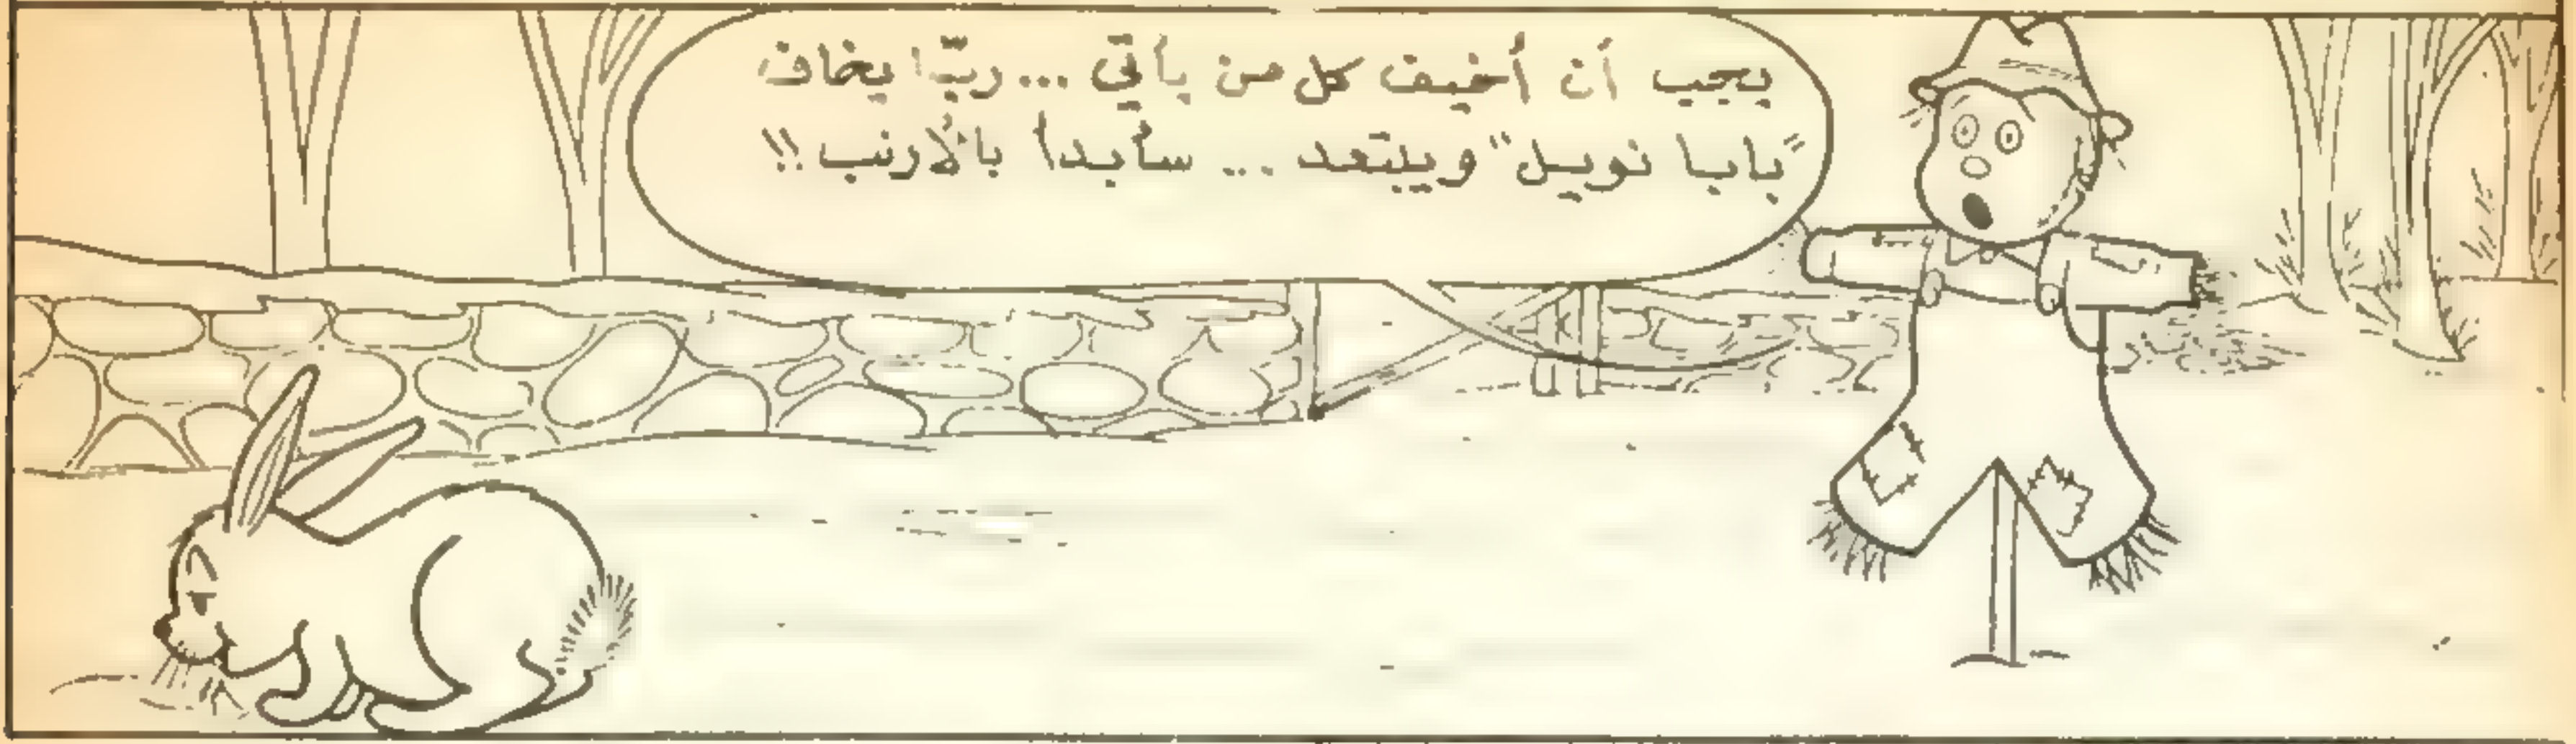 يجب أن أخيف كل من يأتي ... ربّما يخاف
"بابا نويل" ويبتعد ... سأبدأ بالأرنب !!